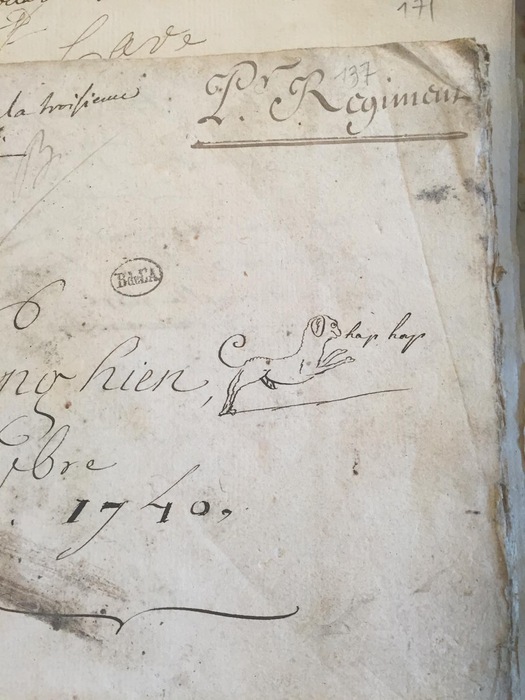 171
Cave
la troisieme
137
Pr. Regiment
B de L'A
nghien,
hap hap
bre
1740,